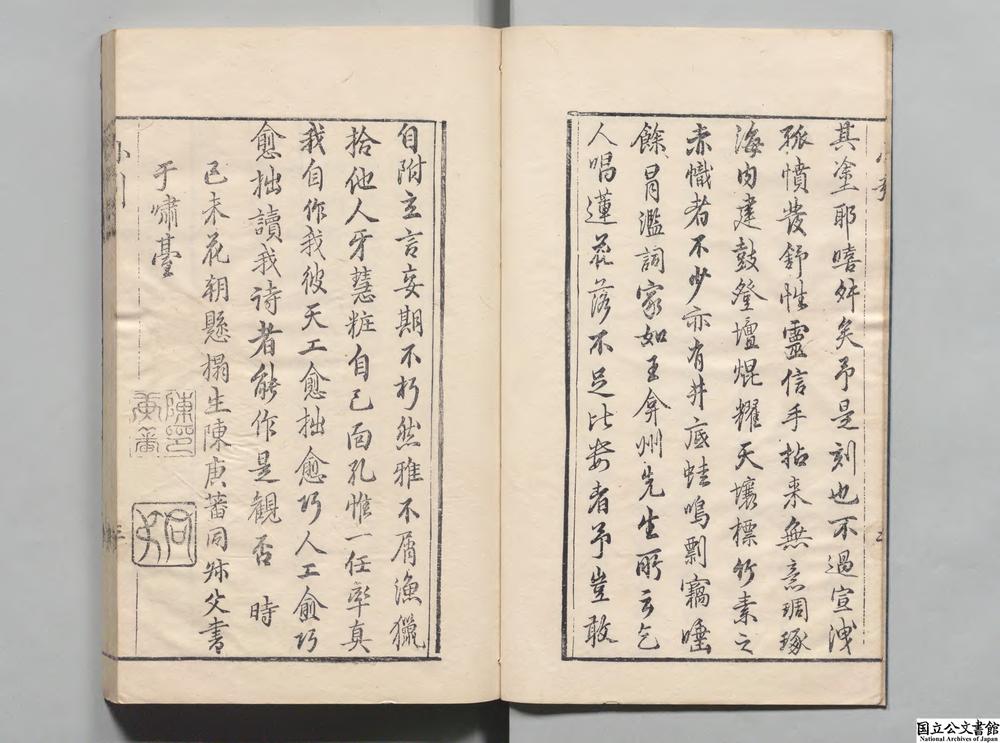 其塗耶嘻舛矣予是刻也不過宣洩
孤憤發舒性靈信手拈来無意琱琢
海内建鼓登壇焜耀天壤標竹素之
赤幟者不少亦有井底蛙鳴剽竊唾
餘冒濫詞家如王弇州先生所云乞
人唱蓮花落不足比数者予豈敢
自附立言妄期不朽然雅不屑漁獵
拾他人牙慧粧自己面孔惟一任率真
我自作我彼天工愈拙愈巧人工愈巧
愈拙讀我诗者能作是觀否 時
己未花朝懸榻生陳庚蕃同叔父書
于嘯臺
陳印
庚蕃
同
父
小引
三
国立公文書館
National Archives of Japan